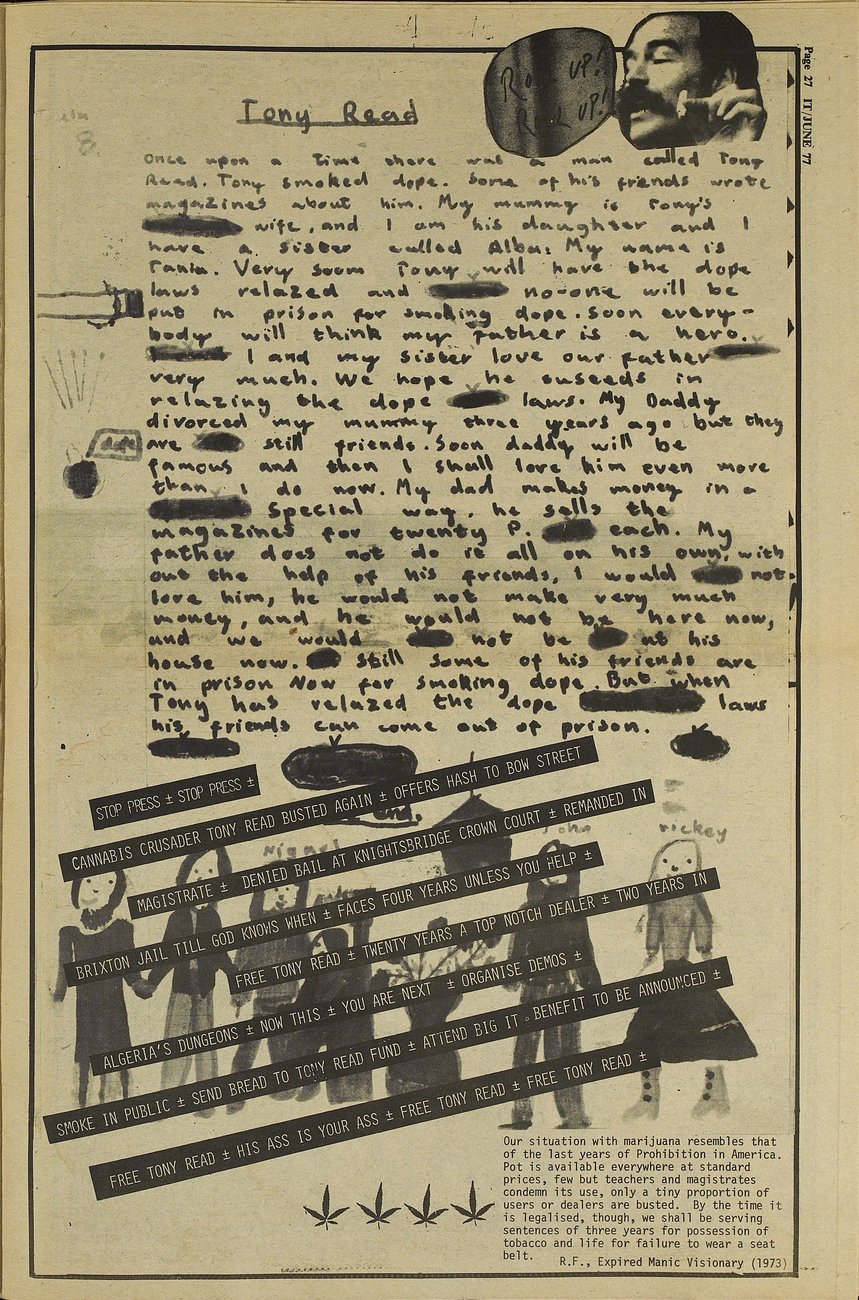 Page 27 IT/JUNE 77
ROLL UP!
ROLL UP!
Tony Read
Once upon a time there was a man called Tony
Read. Tony smoked dope. Some of his friends wrote
magazines about him. My mummy is Tony's
wife, and I am his daughter and I
have a sister called Alba: My name is
Tania. Very soom Tony will have the dope
laws relazed and no-one will be
put in prison for smoking dope. Soon every-
body will think my father is a hero.
I and my sister love our father
very much. We hope he suseeds in
relazing the dope laws. My Daddy
divorced my mummy three years ago but they
are still friends. Soon daddy will be
famous and then I shall love him even more
than I do now. My dad makes money in a
Special way. he sells the
magazines for twenty P. each. My
father does not do it all on his own, with
out the help of his friends, I would not
love him, he would not make very much
money, and he would not be here now,
and we would not be at his
house now. Still some of his friends are
in prison Now for smoking dope. But when
Tony has relazed the dope laws
his friends can come out of prison.
end.
dope
Nignel
John
rickey
STOP PRESS ± STOP PRESS ±
CANNABIS CRUSADER TONY READ BUSTED AGAIN ± OFFERS HASH TO BOW STREET
MAGISTRATE ± DENIED BAIL AT KNIGHTSBRIDGE CROWN COURT ± REMANDED IN
BRIXTON JAIL TILL GOD KNOWS WHEN ± FACES FOUR YEARS UNLESS YOU HELP ±
FREE TONY READ ± TWENTY YEARS A TOP NOTCH DEALER ± TWO YEARS IN
ALGERIA'S DUNGEONS ± NOW THIS ± YOU ARE NEXT ± ORGANISE DEMOS ±
SMOKE IN PUBLIC ± SEND BREAD TO TONY READ FUND ± ATTEND BIG IT BENEFIT TO BE ANNOUNCED ±
FREE TONY READ ± HIS ASS IS YOUR ASS ± FREE TONY READ ± FREE TONY READ ±
Our situation with marijuana resembles that
of the last years of Prohibition in America.
Pot is available everywhere at standard
prices, few but teachers and magistrates
condemn its use, only a tiny proportion of
users or dealers are busted. By the time it
is legalised, though, we shall be serving
sentences of three years for possession of
tobacco and life for failure to wear a seat
belt.
R.F., Expired Manic Visionary (1973)